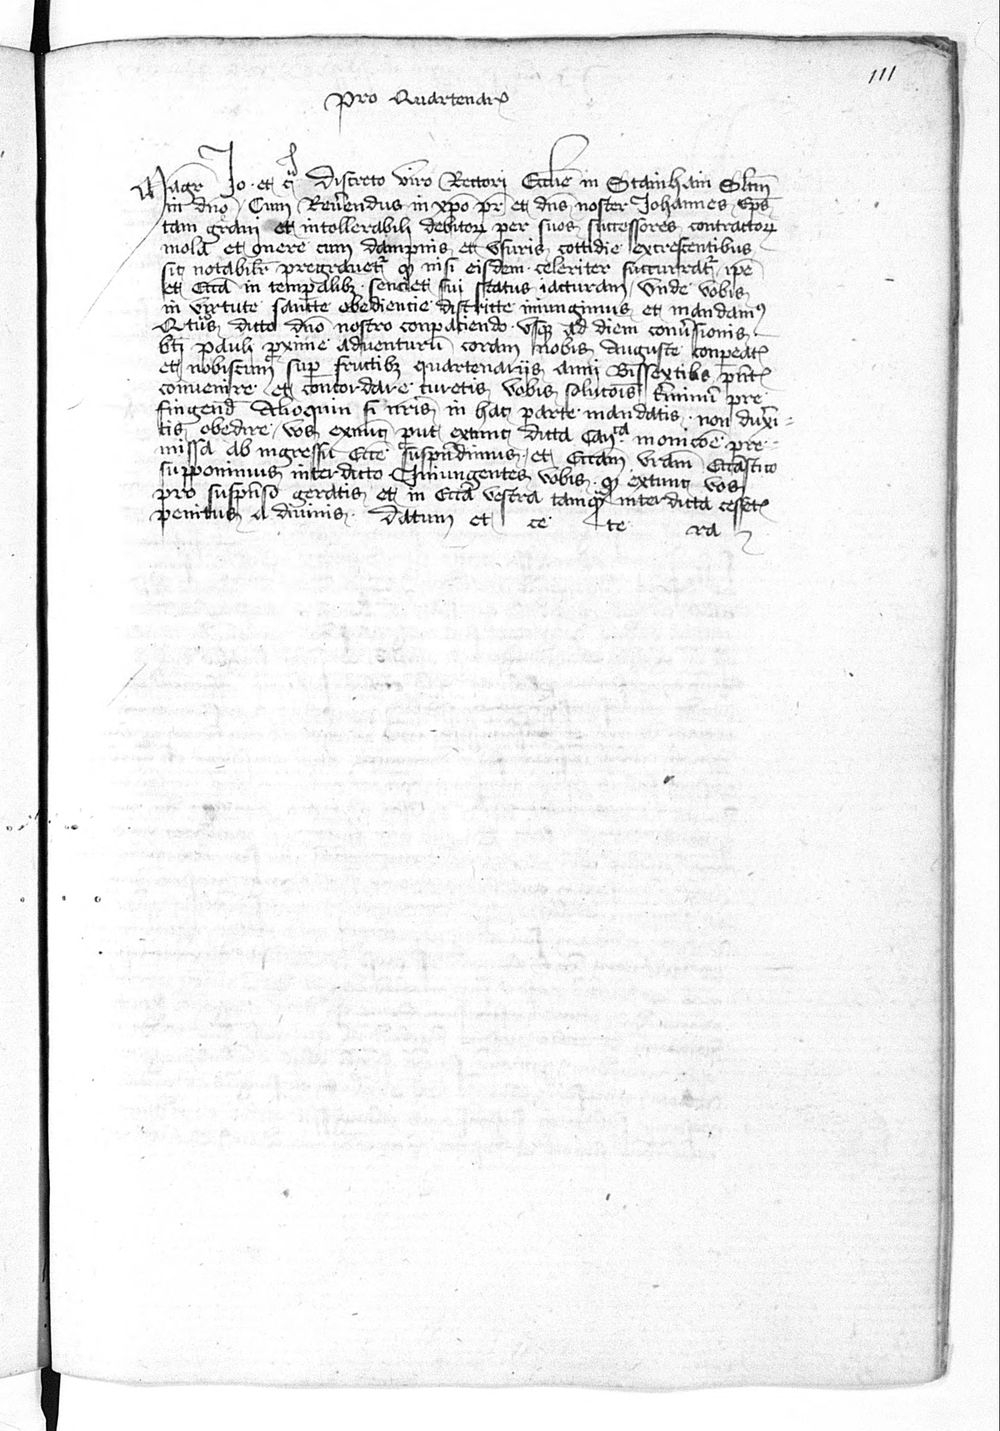 111
Pro Quartenar
Magr Jo. et c. Discreto viro Rectori Ecclie in Stainhain Sltm
in dno Cum Reverendus in xpo pr et dns noster Johannes Eps
tam gravi et intollerabili debitorum per suos successores contractorum
mola et onere cum dampnis et Usuris cottidie excrescentibus
sit notabilr pregravetur quod nisi eisdem celeriter succurratur ipe
et Ecca in temporalibz senciet sui status iacturam Unde vobis
in virtute sancte obediencie districte iniungimus et mandamus
Qtus dicto dno nostro conpaciendo usque ad diem conversionis
bti pauli proxime adventurum coram nobis Auguste conpeatis
et nobiscum super fructibz quartenarijs anni Bissextilis
convenire et concordare curetis vobis solucois terminum pre
fingend Alioquin si nris in hac parte mandatis non duxi=
tis obedire vos extunc put extunc dicta canca monicoe pre=
missa ab ingressu Ecce suspendimus et Eccam vram Eccastico
supponimus interdicto Iniungentes vobis quod extunc vos
pro suspenso geratis et in Ecca vestra tamquam interdicta cessetis
penitus a divinis. Datum et ce te ra